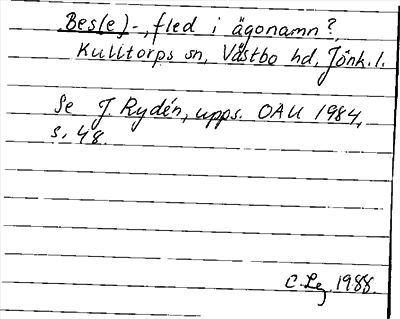 Bes(e)-, fled i ägonamn?
Kulltorps sn, Västbo hd, Jönk. l.
Se J. Rydén, upps. OAU 1984,
s. 48.
C. Lg. 1988.